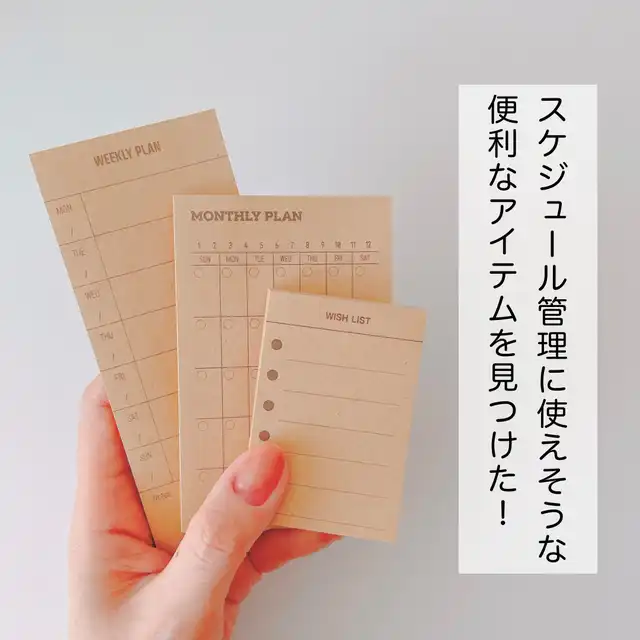 スケジュール管理に使えそうな
便利なアイテムを見つけた！
WEEKLY PLAN
MON
/
TUE
/
WED
/
THU
/
FRI
/
SAT
/
SUN
/
MONTHLY PLAN
1 2 3 4 5 6 7 8 9 10 11 12
SUN MON TUE WED THU FRI SAT
WISH LIST